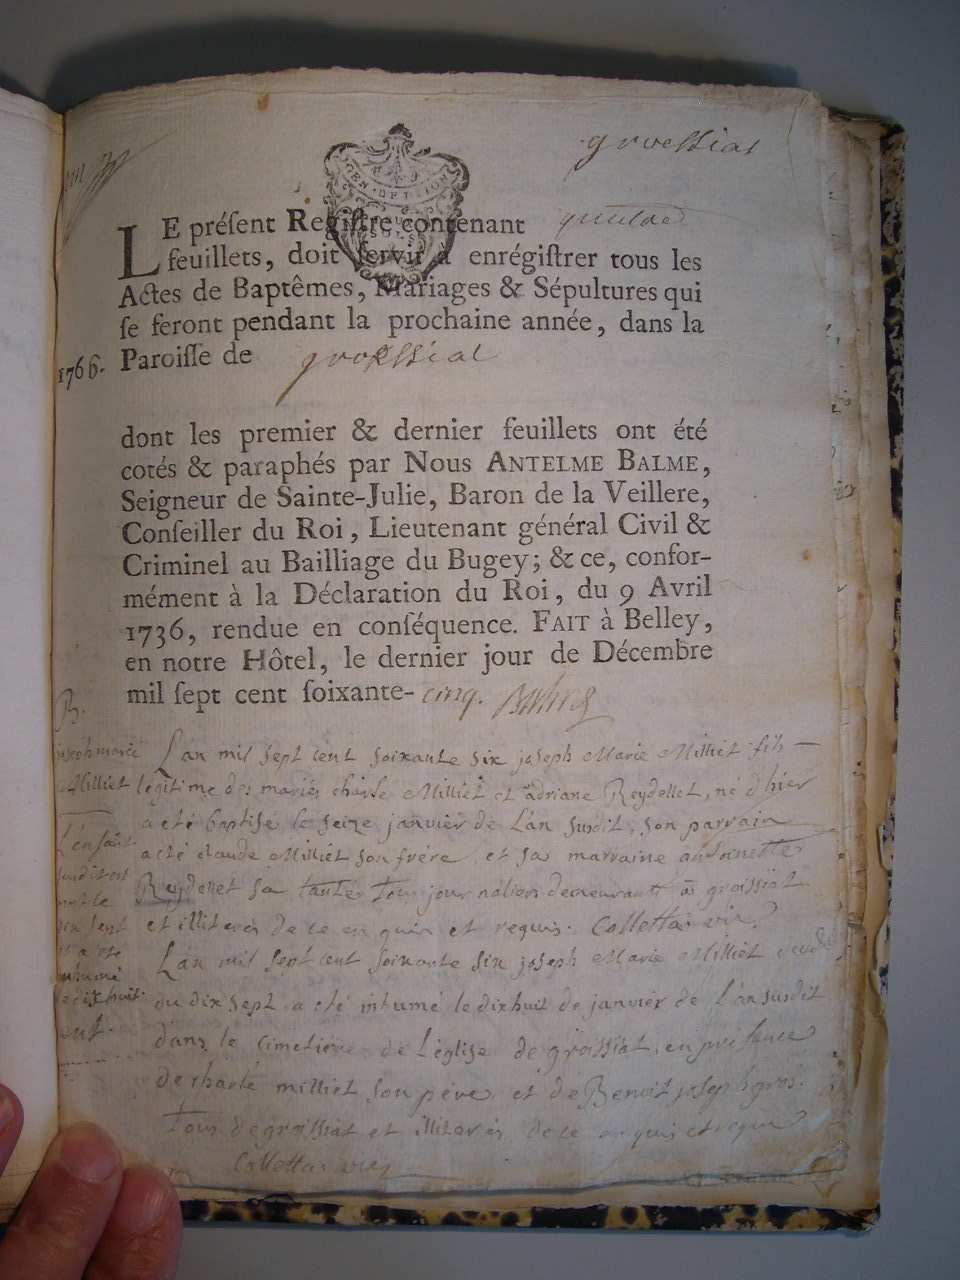 groessiat
LE préſent Regiſtre contenant
feuillets, doit ſervir à enrégiſtrer tous les
Actes de Baptêmes, Mariages & Sépultures qui
ſe feront pendant la prochaine année, dans la
1766. Paroiſſe de groessiat
dont les premier & dernier feuillets ont été
cotés & paraphés par Nous ANTELME BALME,
Seigneur de Sainte-Julie, Baron de la Veillere,
Conſeiller du Roi, Lieutenant général Civil &
Criminel au Bailliage du Bugey; & ce, confor-
mément à la Déclaration du Roi, du 9 Avril
1736, rendue en conſéquence. FAIT à Belley,
en notre Hôtel, le dernier jour de Décembre
mil ſept cent ſoixante-cinq.
B.
joseph marie
Milliet
L'enfant
susdit est
mort le
dix sept
et a été
inhumé
le dixhuit
L'an mil sept cent soixante six joseph Marie Milliet fils
légitime des mariés charle Milliet et adriane Reydellet, né d'hier
a eté baptisé le seize janvier de L'an susdit, son parrain
a eté claude Milliet son frére et sa marraine antoinette
Reydellet sa tante tous journaliers demeurant à groissiat
et illiterés de ce enquis et requis. Colletta vic.
L'an mil sept cent soixante six joseph Marie Milliet
du dix sept a eté inhumé le dixhuit de janvier de L'an susdit
dans le cimetiere de L'église de groissiat, en présence
de charle milliet son pére et de Benoit joseph gros.
tous de groissiat et illiterés de ce enquis et requis
Colletta vic.